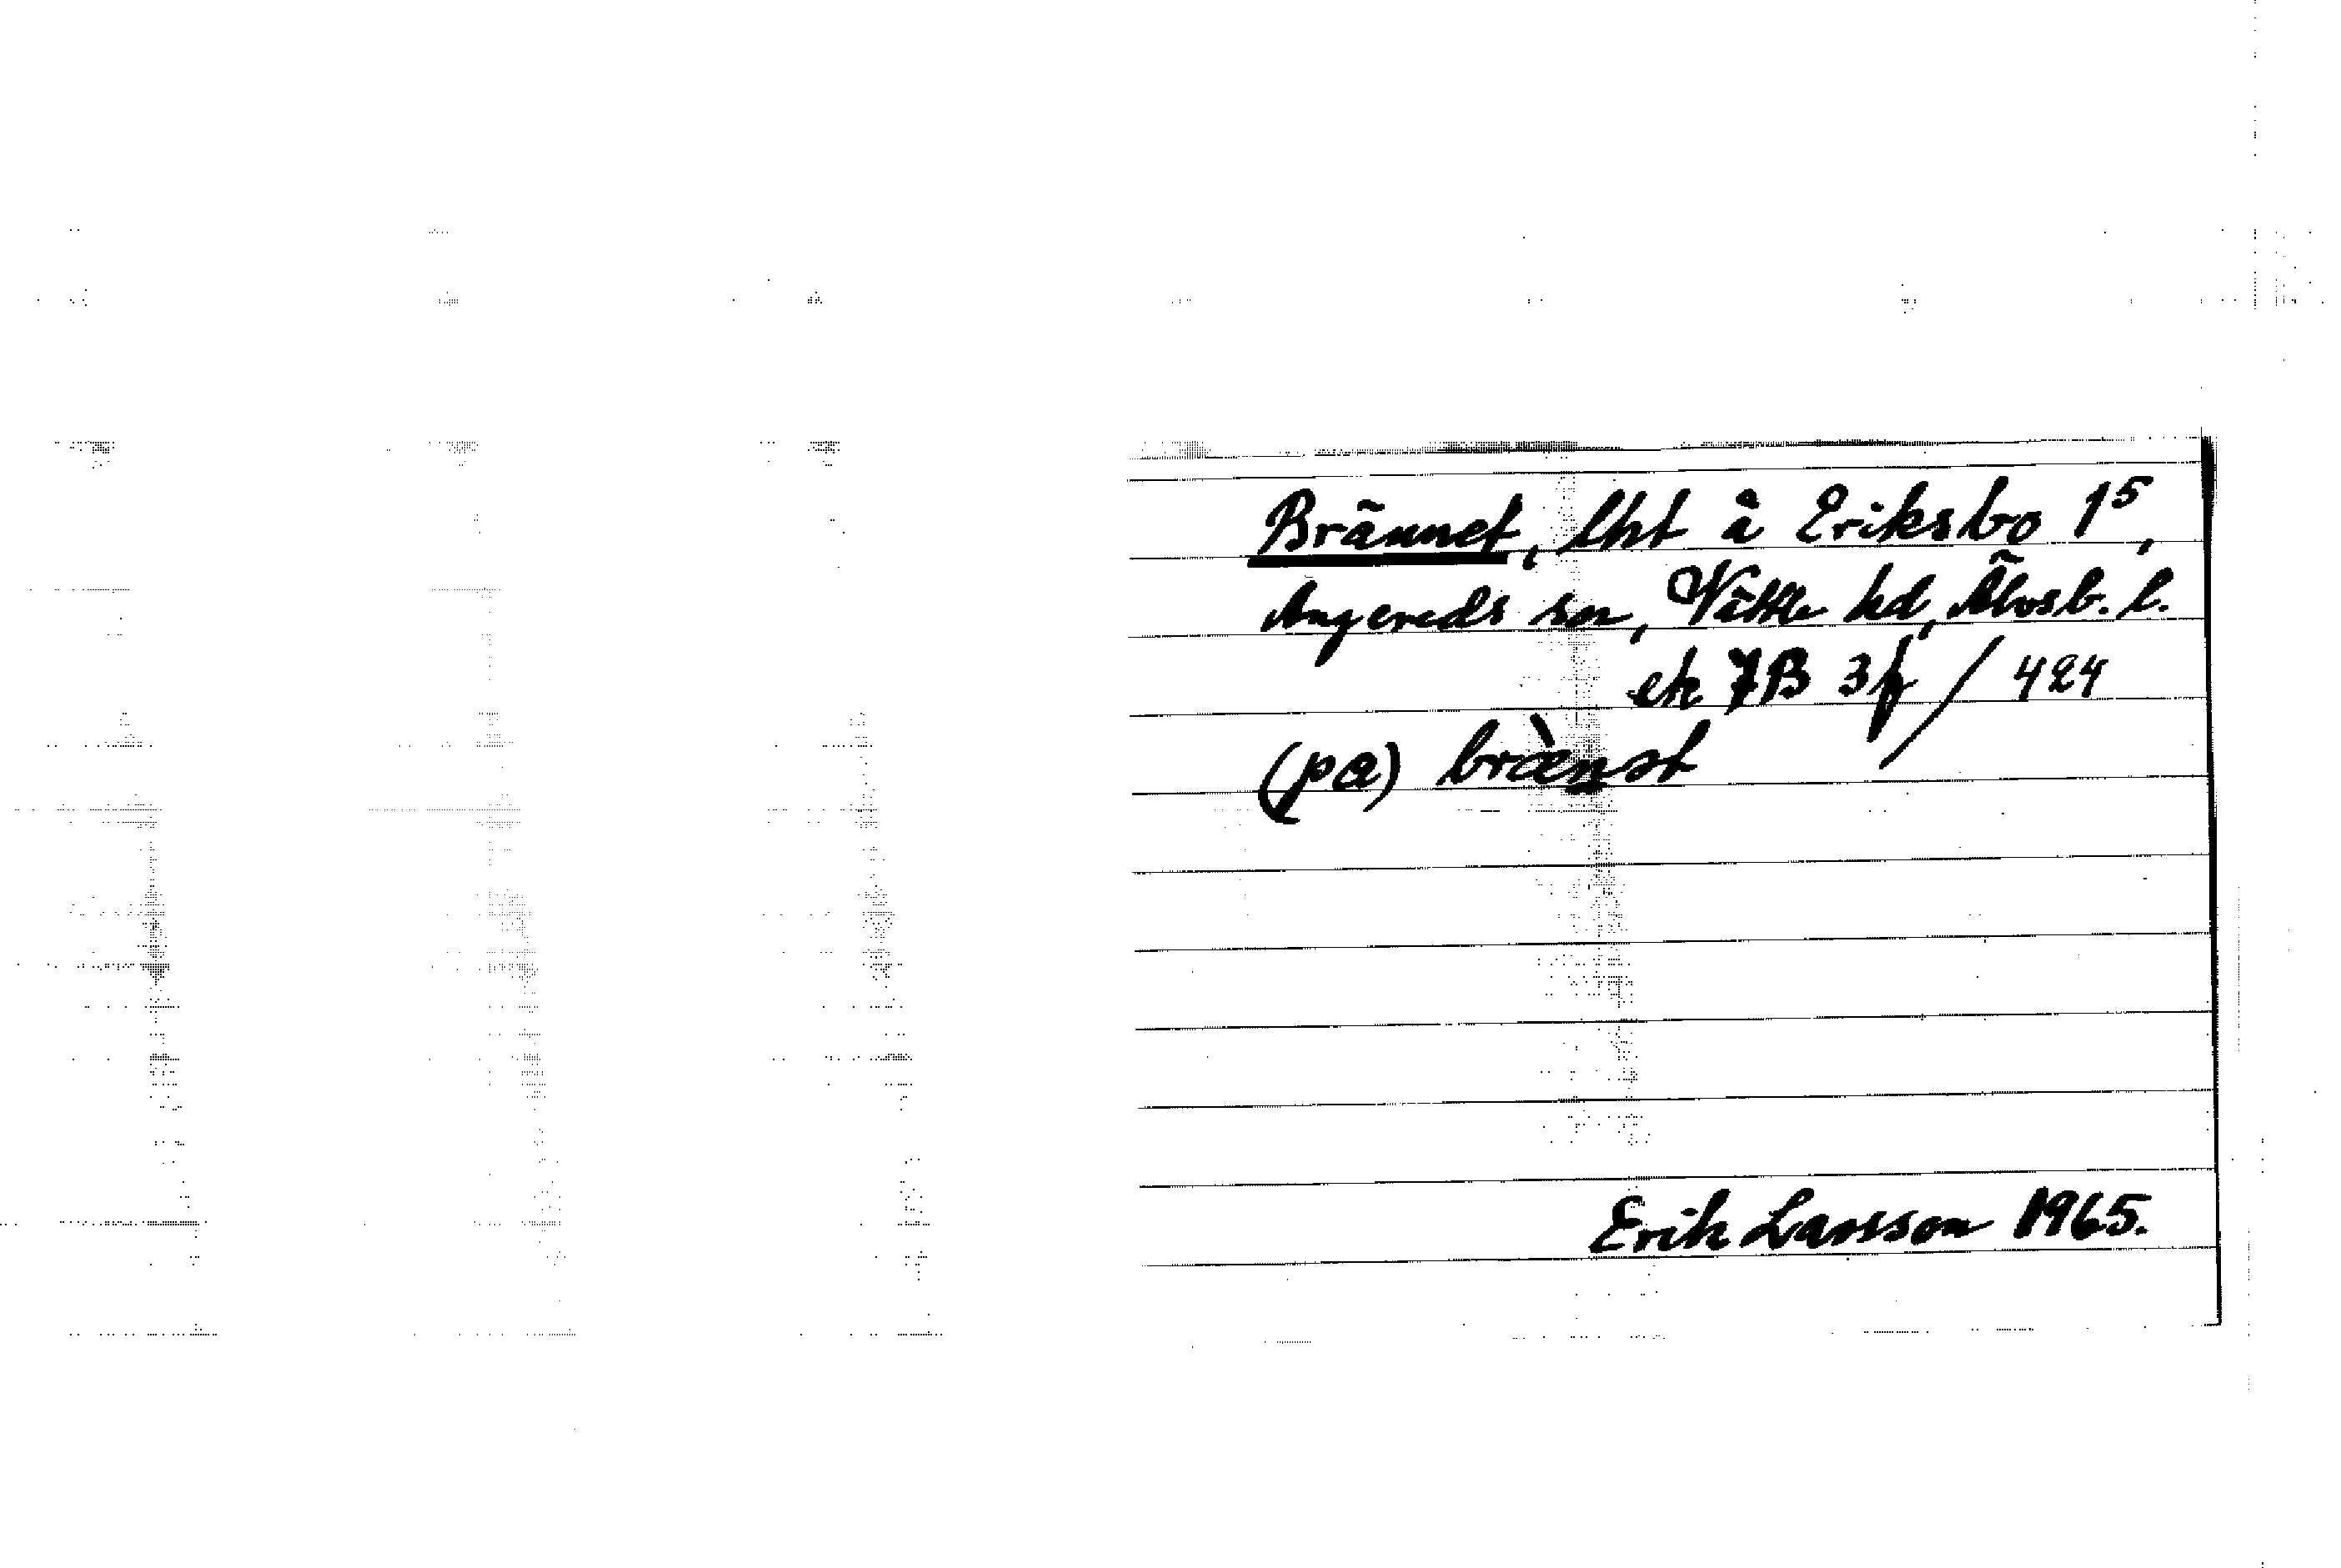 Brännet, lht å Eriksbo 1⁵,
Angereds sn, Vättle hd, Älvsb. l.
ek 7B 3f / 424
(pa) brænət
Erik Larsson 1965.